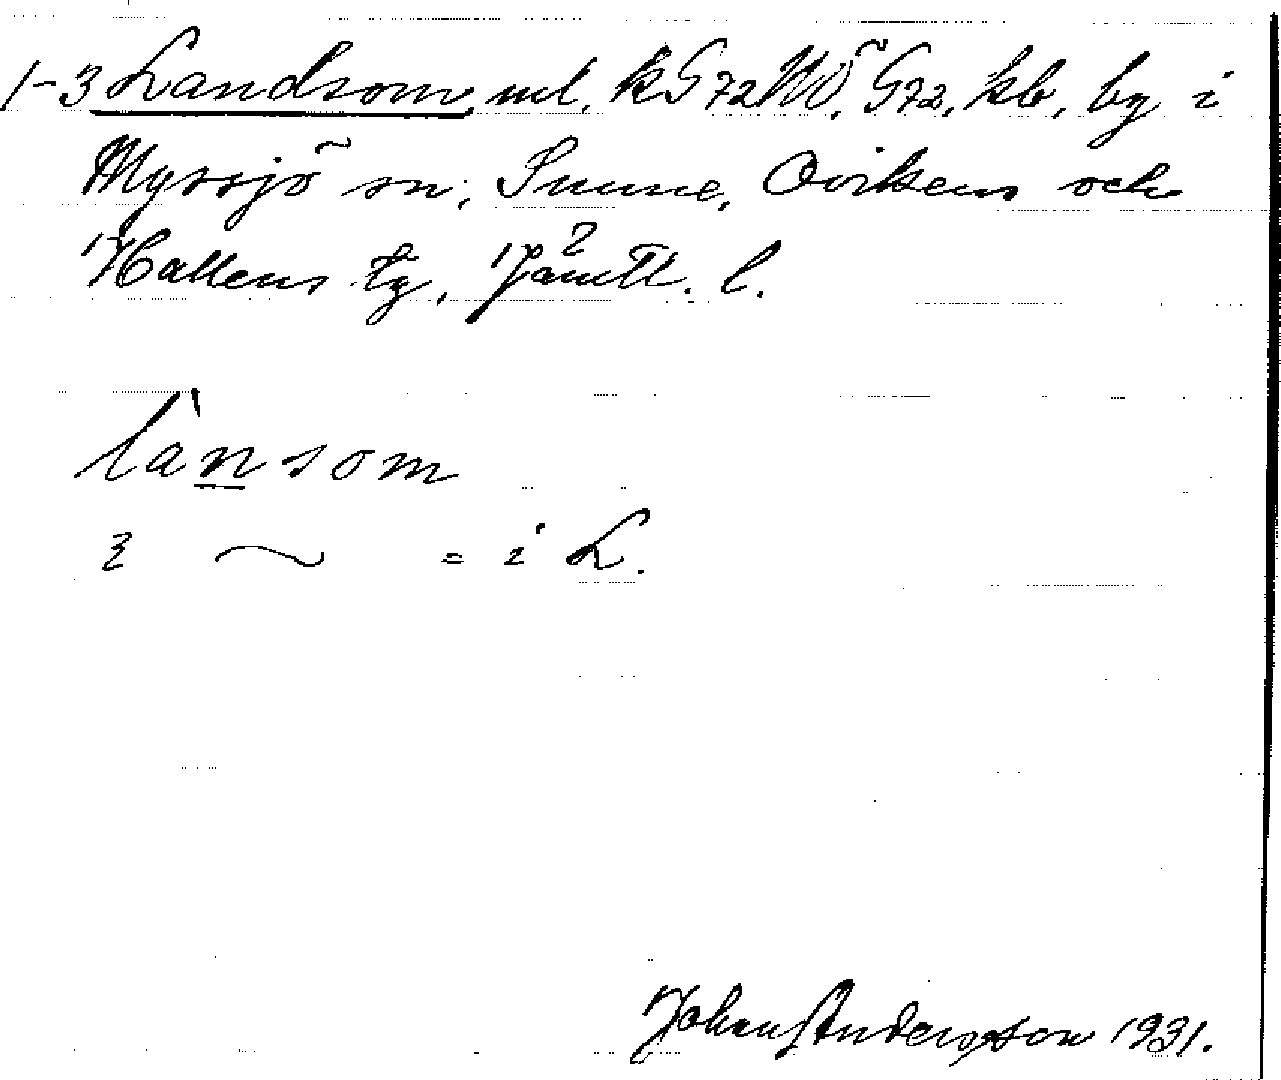 1-3 Landsom, ml. kG72NV, G72, kb, by i
Myssjö sn, Sunne, Ovikens och
Hallens tg, Jämtl. l.
lánsom
i ~ = i L.
Johan Andersson 1931.